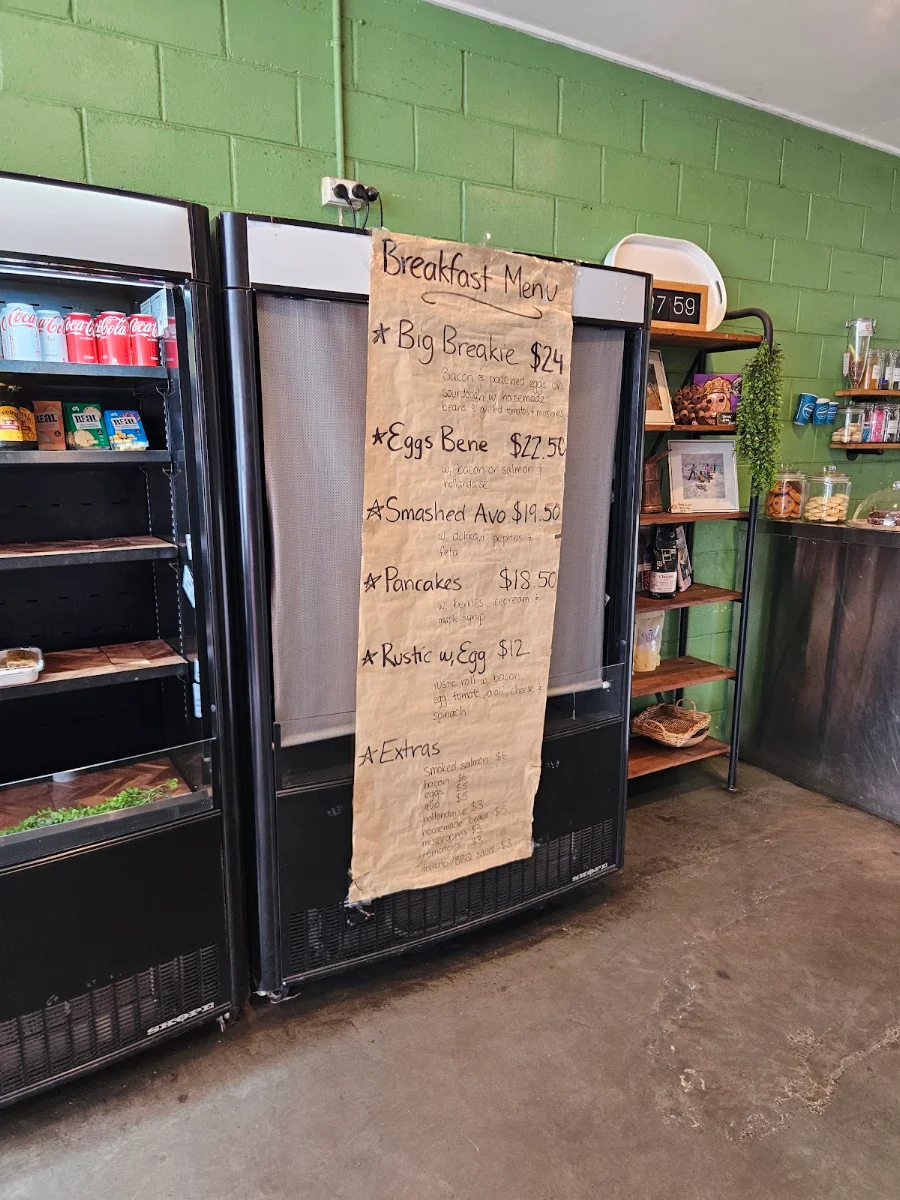 Breakfast Menu
Big Breakie $24
Bacon & poached eggs on
sourdough w, housemade
beans & grilled tomatos &
Eggs Bene $22.50
w, bacon or salmon &
hollandaise
Smashed Avo $19.50
w, dukkah, pepitas &
feta
Pancakes $18.50
w, berries, icecream &
maple syrup
Rustic w, Egg $12
rustic roll w, bacon,
egg, tomato, aioli, cheese &
spinach
Extras
Smoked salmon $6
bacon $6
eggs $5
avo $5
hollandaise $3
housemade beans $5
mushrooms $3
tomatoes $3
tomato/BBQ sauce $3
07:59
Coca-Cola
Coca
REAL
REAL
REAL
SKOPE
SKOPE